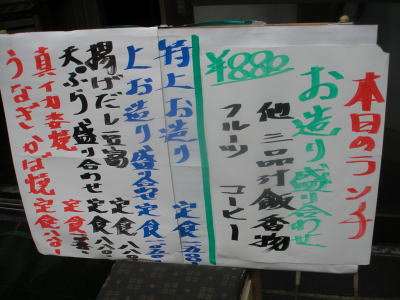 本日のランチ
お造り盛り合わせ
他三品汁飯香物
フルーツ コーヒー
¥880
特上お造り 定食
上お造り盛合せ定食
揚げだし豆腐 定食
天ぷら盛り合わせ 定食
真イカ姿焼 定食
うなぎかば焼 定食